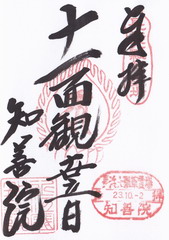 奉拝
十一面観世音
知善院
23.10.-2
知善院